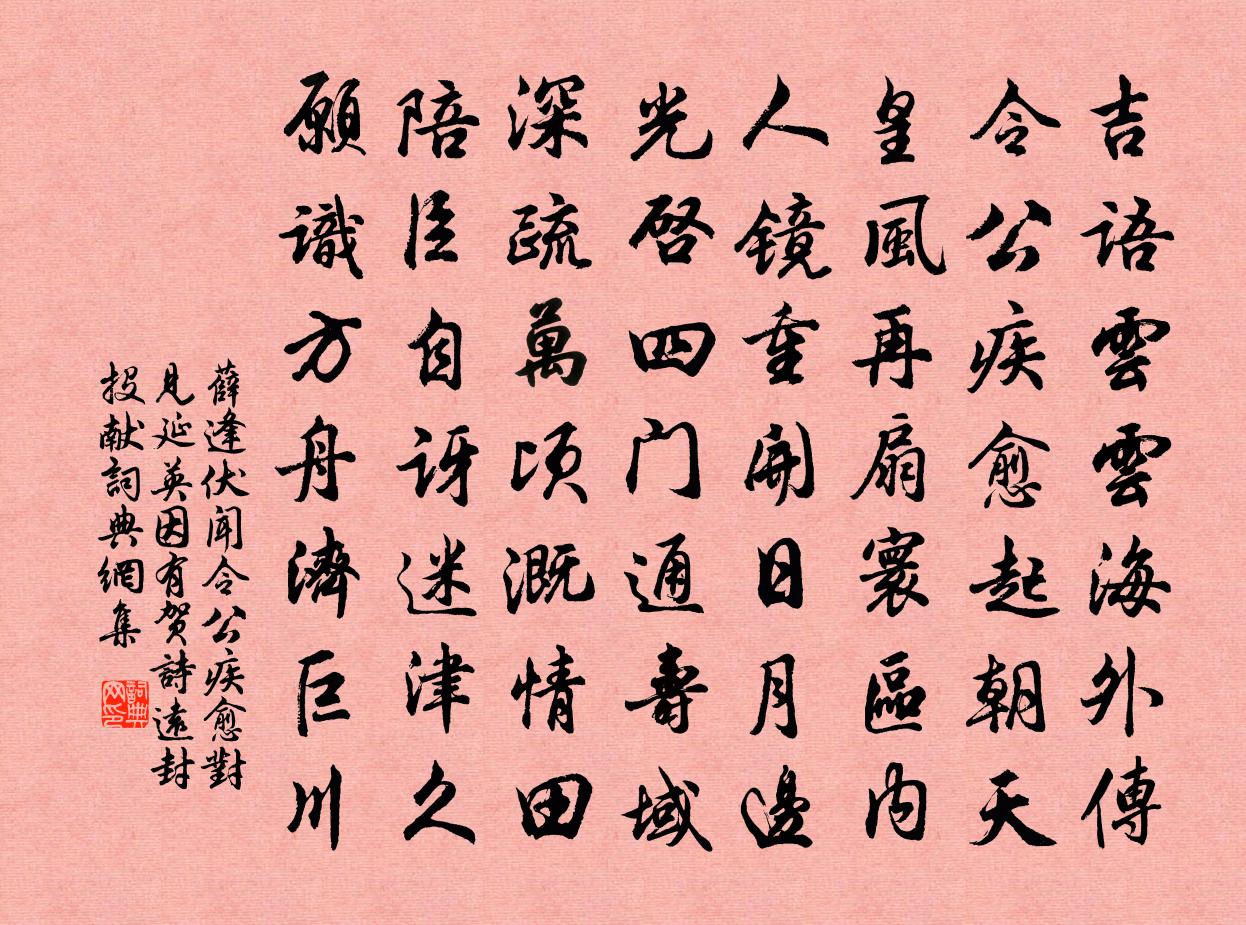 吉語雲雲海外傳
令公疾愈起朝天
皇風再扇寰區内
人镜重開日月邊
光啓四门通壽域
深疏萬顷溉情田
陪臣自讶迷津久
願識方舟濟巨川
薛逢伏闻令公疾愈對
見延英因有贺詩遠封
投献詞典網集
詞典网印